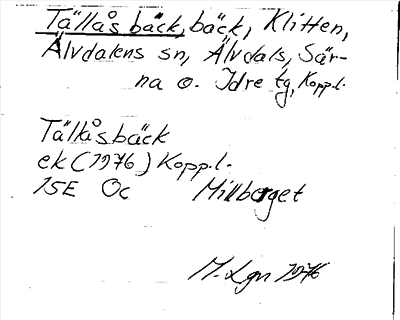 Tällåsbäck, bäck, Klitten,
Älvdalens sn, Älvdals, Sär-
na o. Idre tg, Kopp.l.
Tällåsbäck
ek (1976) Kopp.l.
15E Oc Millberget
M. Lgn 1976